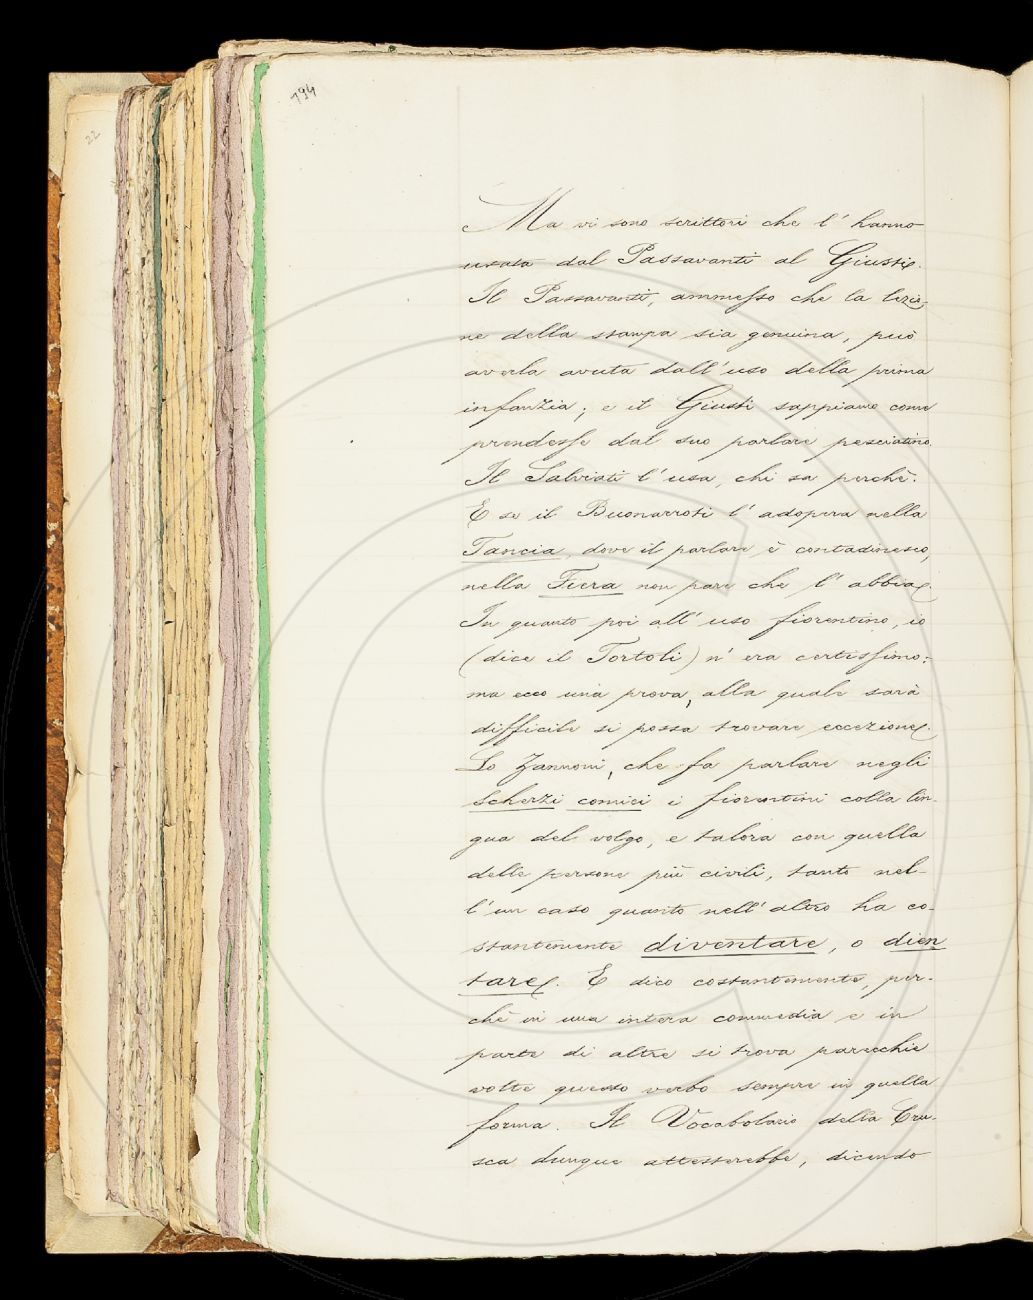 194
22
Ma vi sono scrittori che l' hanno
usata dal Passavanti al Giusti.
Il Passavanti, ammesso che la lezio-
ne della stampa sia genuina, può
averla avuta dall' uso della prima
infanzia; e il Giusti sappiamo come
prendesse dal suo parlare pesciatino.
Il Salviati l' usa, chi sa perchè.
E se il Buonarroti l' adopera nella
Tancia, dove il parlare è contadinesco,
nella Fiera non pare che l' abbia.
In quanto poi all' uso fiorentino, io
(dice il Tortoli) n' era certissimo:
ma ecco una prova, alla quale sarà
difficile si possa trovare eccezione.
Lo Zannoni, che fa parlare negli
Scherzi comici i fiorentini colla lin-
gua del volgo, e talora con quella
delle persone più civili, tanto nel-
l' un caso quanto nell' altro ha co-
stantemente diventare, o dien
tare. E dico costantemente, per-
chè in una intera commedia e in
parte di altre si trova parecchie
volte questo verbo sempre in quella
forma. Il Vocabolario della Cru-
sca dunque attesterebbe, dicendo